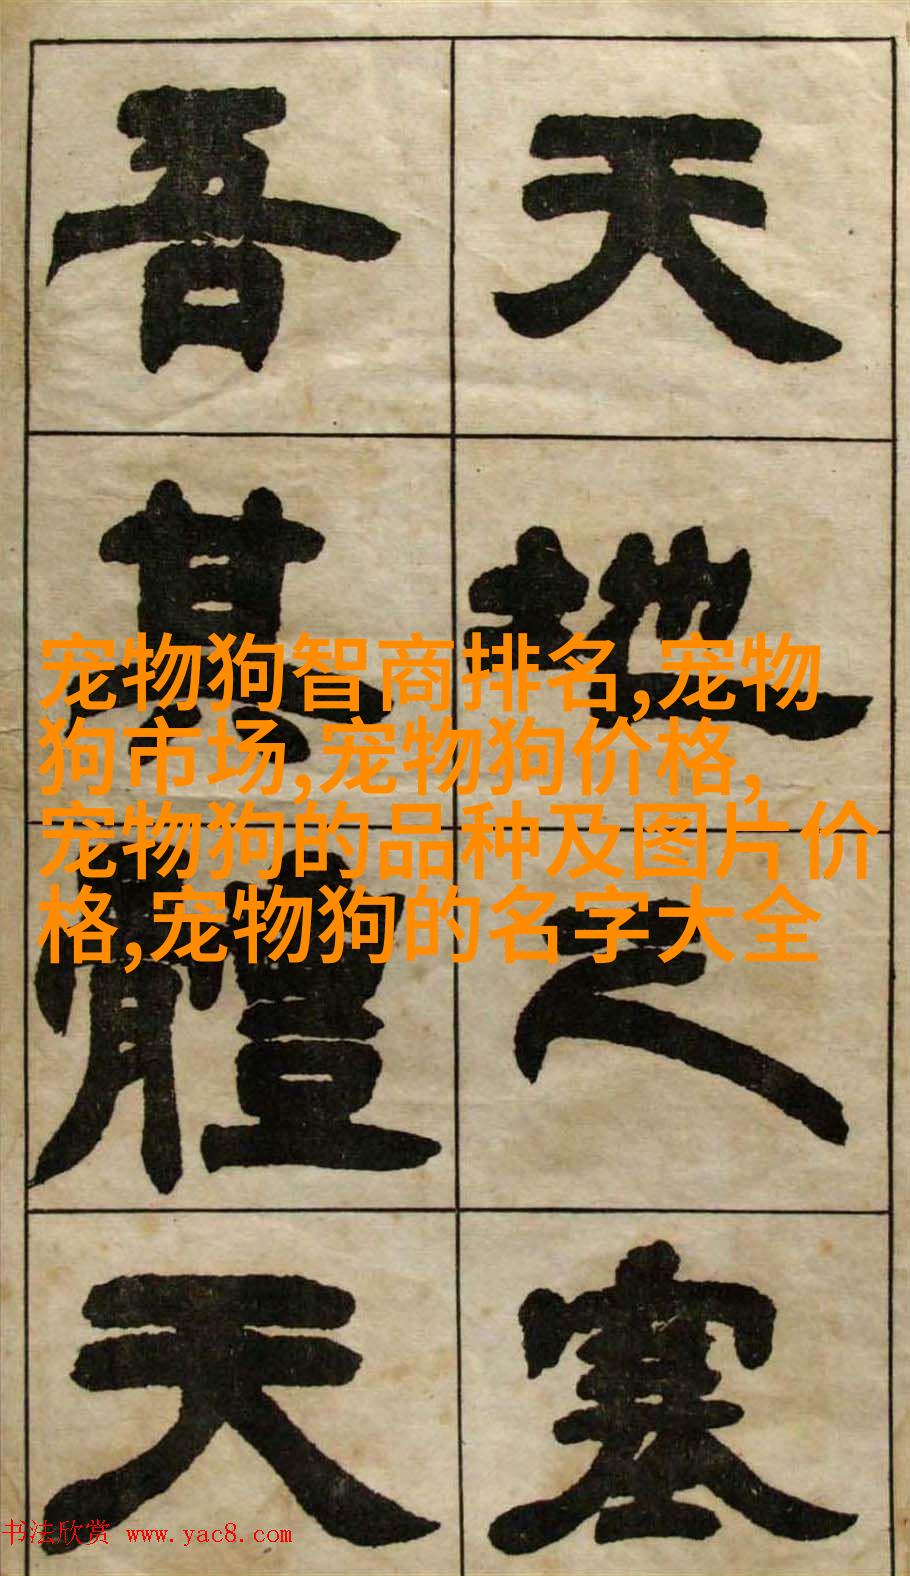 天地之塞
吾其體天
宠物狗智商排名,宠物
狗市场,宠物狗价格,
宠物狗的品种及图片价
格,宠物狗的名字大全
书法欣赏 www.yac8.com